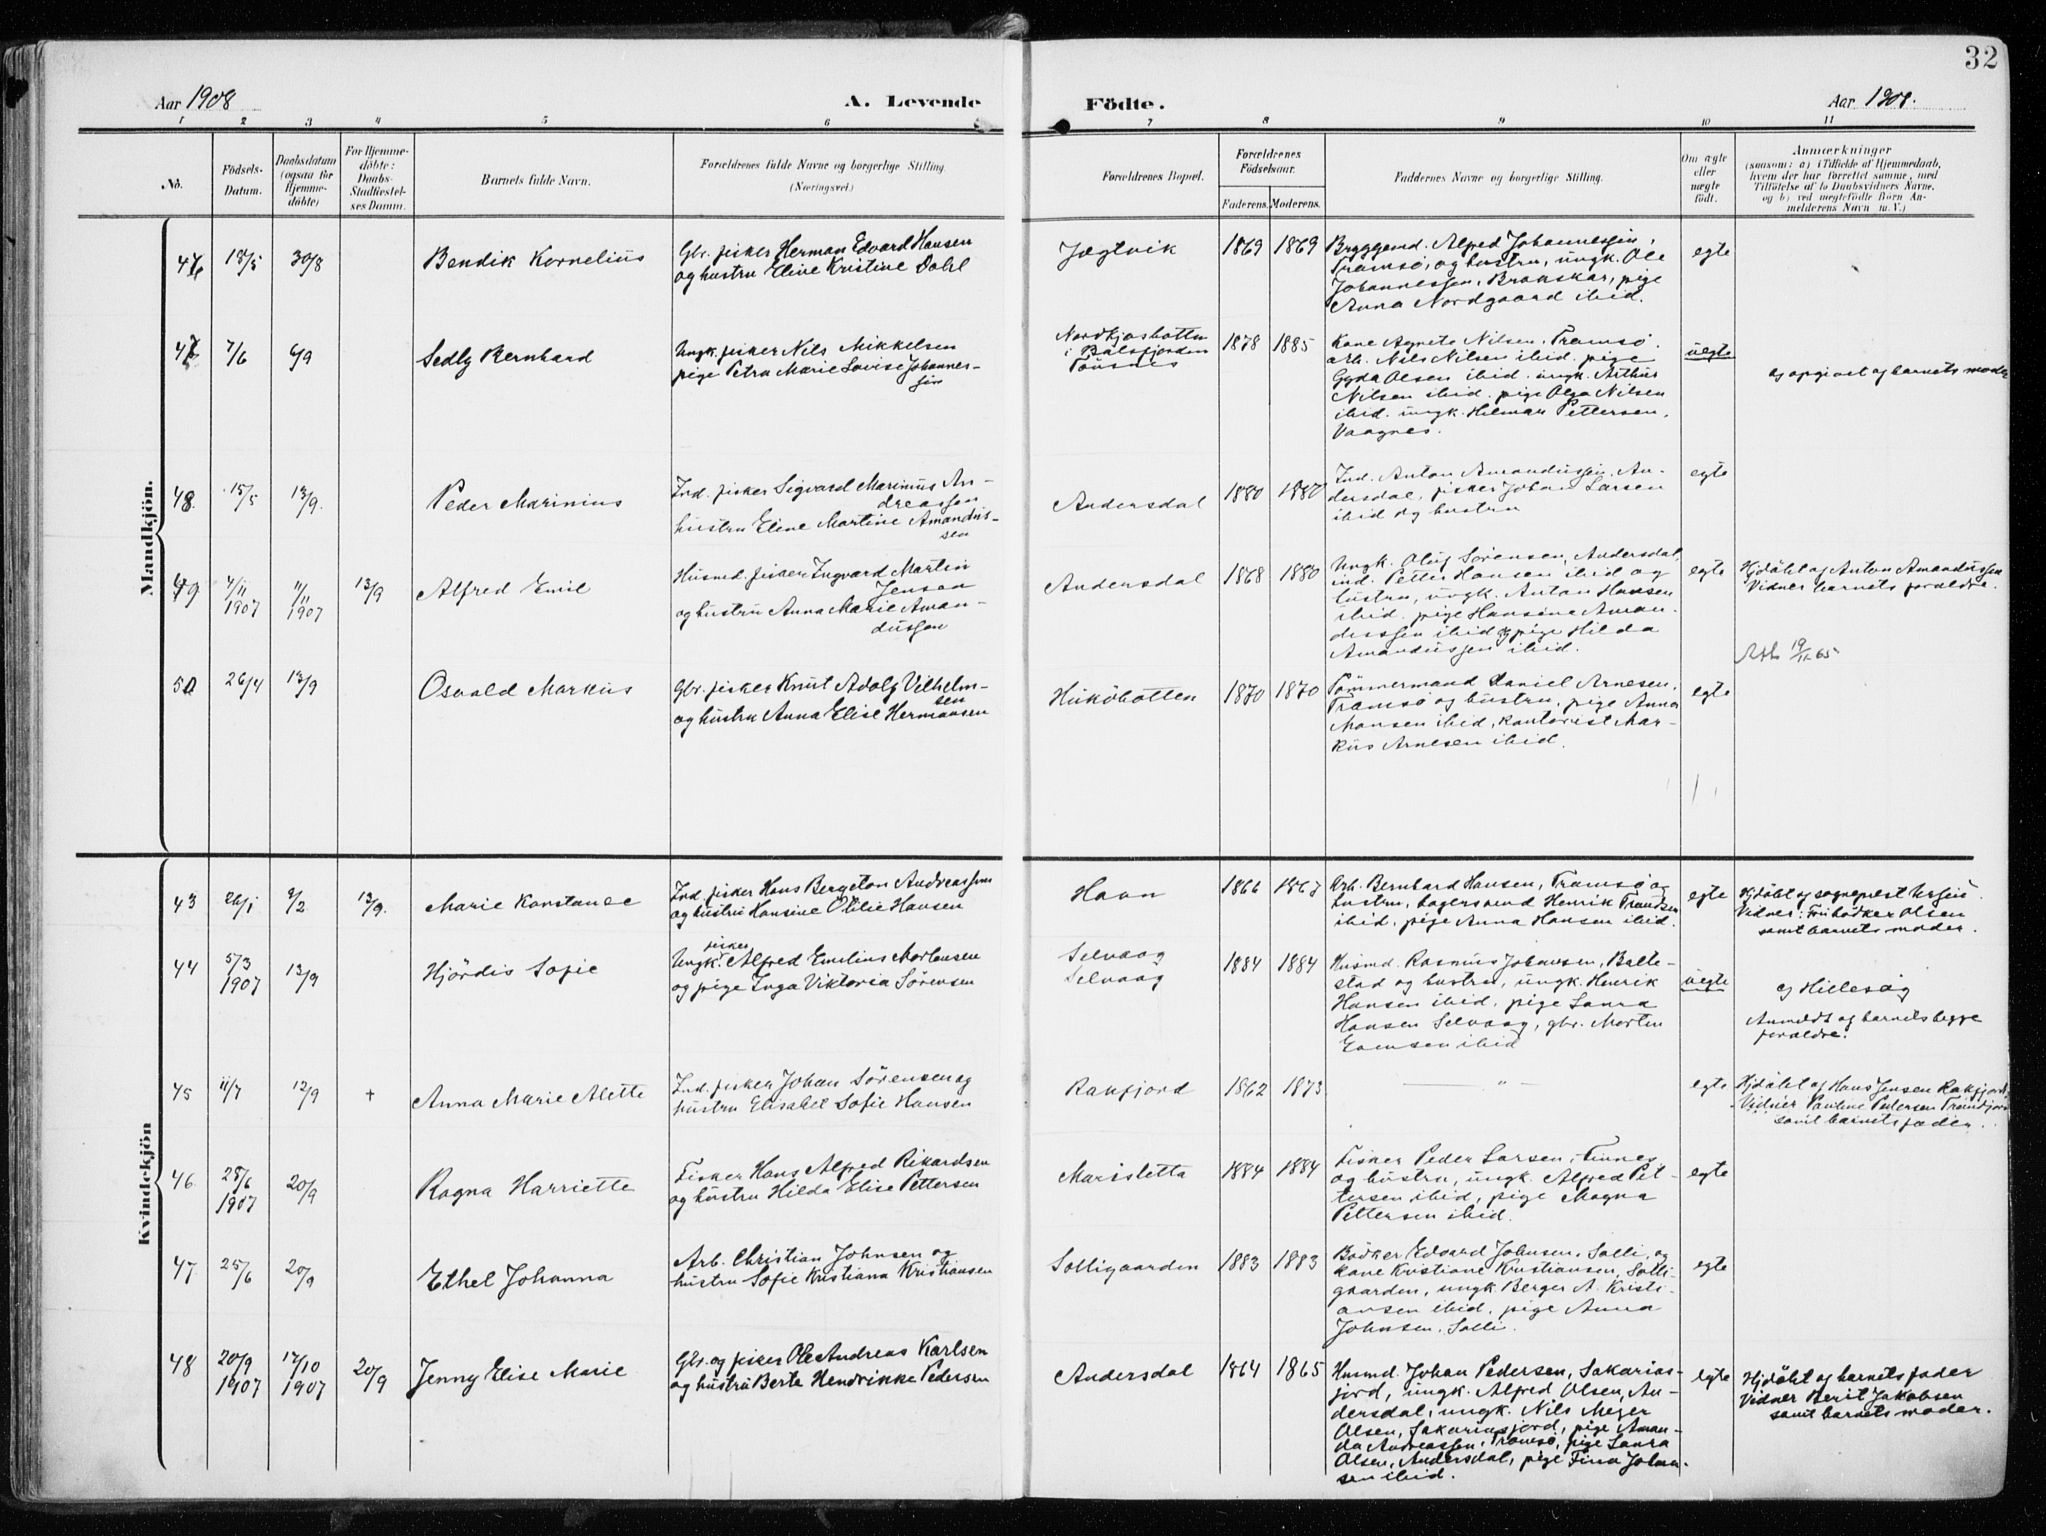 32
Aar 1908
A. Levende
Födte.
Aar 1908.
1 2 3 4 5 6 7 8 9 10 11
No.
Födsels-
Datum.
Daabsdatum
(ogsaa for
Hjemme-
döbte)
For Hjemme-
döbte:
Daabs-
Stadfæstel-
ses Datum.
Barnets fulde Navn.
Forældrenes fulde Navne og borgerlige Stilling.
(Næringsvei)
Forældrenes Bopæl.
Forældrenes
Födselsaar.
Faderens. Moderens.
Faddernes Navne og borgerlige Stilling.
Om ægte
eller
uægte
födt.
Anmærkninger
(saasom: a) i Tilfælde af Hjemmedaab,
hvem der har forrettet samme, med
Tilföielse af to Daabsvidners Navne,
og b) ved uægtefödte Börn An-
melderens Navn m. V.)
Mandkjön.
18/5 30/8
Bendik Kornelius
Gbr. fisker Herman Edvard Hansen
og hustru Eline Kristine Dahl
Jægtvik
1869 1869
Bryggemd. Alfred Johannessen,
Tromsø, og hustru, ungk. Ole
Johannessen, Brokskar, pige
Anna Nordgaard ibid.
egte
47 7/6 6/9
Sedly Bernhard
Ungk. fisker Nils Mikkelsen
pige Petra Marie Lovise Johannes-
sen
Nordkjosbotten
i Balsfjorden
Tønsnes
1878 1885
Kone Agnete Nilsen, Tromsø.
arb. Nils Nilsen ibid. pige
Gyda Olsen ibid. ungk. Arthur
Nilsen ibid. pige Olga Nilsen
ibid. ungk. Hilmar Pettersen,
Vaagnes.
uegte
opgivet af barnets moder
48. 15/5 13/9.
Peder Marinius
Ind. fisker Sigvard Marinius An-
dreassen
hustru Eline Martine Amandus-
sen
Andersdal
1880 1880
Ind. Anton Amandussen, An-
dersdal, fisker Johan Larsen
ibid og hustru
egte
49 4/11 1907 11/11 1907 13/9
Alfred Emil
Husmd. fisker Ingvard Martin
Jensen
og hustru Anna Marie Aman-
dussen
Andersdal
1868 1880
Ungk. Oluf Sørensen, Andersdal,
ind. Petter Hansen ibid og
hustru, ungk. Anton Hansen
ibid. pige Hansine Aman-
dussen ibid og pige Hilda
Amandussen ibid.
egte
Hjdøbt af Anton Amandussen
Vidner barnets forældre.
50 26/4 13/9
Osvald Markus
Gbr. fisker Knut Adolf Vilhelm-
sen
og hustru Anna Elise Hermansen
1870 1870
Tømmermand Daniel Arnesen,
Tromsø og hustru, pige Anna
Monsen ibid, kontorist Mar-
kus Arnesen ibid.
egte
Kvindekjön
43 26/1 9/2 13/9.
Marie Konstanse
Ind. fisker Hans Bergeton Andreassen
og hustru Hansine Otilie Hansen
Haan
1866 1867
Arb. Bernhard Hansen, Tromsø og
hustru, bagersvend Henrik Trondsen
ibid, pige Anna Hansen ibid.
egte
Hjdøbt af sogneprest
Vidner: Fru bødker Olsen
samt barnets moder.
44 5/3 1907 13/9
Hjørdis Sofie
Ungk. fisker Alfred Emilius Mortensen
og pige Inga Viktoria Sørensen
Selvaag
Selvaag
1884 1884
Husmd. Rasmus Johansen, Balte-
stad og hustru, ungk. Henrik
Hansen ibid, pige Laura
Hansen Selvaag, gbr. Morten
ibid
uegte
cf Hillesøg
Anmeldt af barnets begge
forældre.
45 11/7 12/9 +
Anna Marie Alette
Ind. fisker Johan Sørensen og
hustru Elisabet Sofie Hansen
Rakfjord
1862 1873
— „ —
egte
Hjdøbt af Hans Jensen Rakfjord,
Vidner Pauline Pedersen
samt barnets fader.
46. 28/6 1907 20/9
Ragna Harriette
Fisker Hans Alfred Rikardsen
og hustru Hilda Elise Pettersen
Marisletta
1884 1884
Fisker Peder Larsen, Finnes
og hustru, ungk. Alfred Pet-
tersen ibid, pige Magna
Pettersen ibid.
egte
47 25/6 20/9
Ethel Johanna
Arb. Christian Johnsen og
hustru Sofie Kristiana Kristiansen
Solligaarden
1883 1883
Bødker Edvard Johnsen, Solli, og
kone Kristiane Kristiansen, Solli-
gaarden, ungk. Berger A. Kristi-
ansen ibid, pige Anna
Johnsen, Solli.
egte
48 20/9 1907 17/10 1907 20/9
Jenny Elise Marie
Gbr. og fisker Ole Andreas Karlsen
og hustru Berte Hendrikke Pedersen
Andersdal
1864 1865
Husmd. Johan Pedersen, Sakarias-
fjord, ungk. Alfred Olsen, An-
dersdal, ungk. Nils Meyer
Olsen, Sakariasfjord, pige Aman-
da Andreassen, Tromsø, pige Laura
Olsen, Andersdal, pige Fina Johan-
sen ibid.
egte
Hjdøbt af barnets fader
Vidner Berit Jakobsen
samt barnets moder.